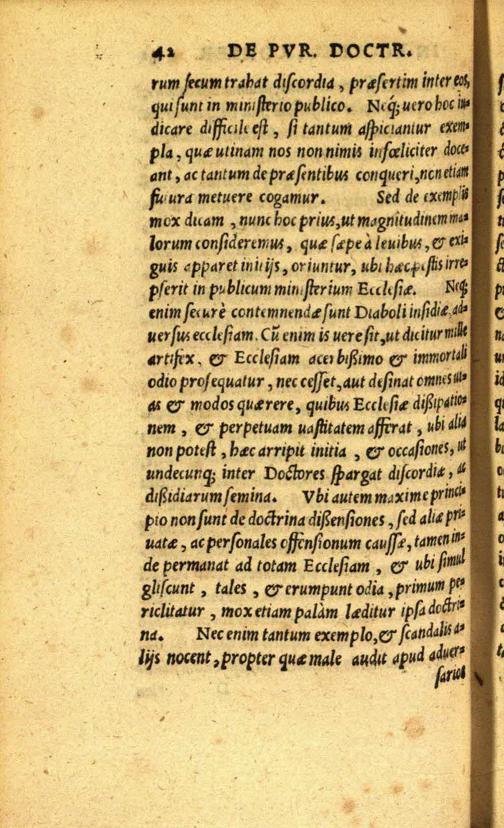 42 DE PVR. DOCTR.
rum secum trahat discordia, præsertim inter eos,
qui sunt in ministerio publico. Neq; uero hoc in-
dicare difficile est, si tantum aspiciantur exem-
pla, quæ utinam nos non nimis infœliciter doce-
ant, ac tantum de præsentibus conqueri, non etiam
futura metuere cogamur. Sed de exemplis
mox dicam, nunc hoc prius, ut magnitudinem ma-
lorum consideremus, quæ sæpe à leuibus, & exi-
guis apparet initijs, oriuntur, ubi hæc pestis irre-
pserit in publicum ministerium Ecclesiæ. Neq;
enim securè contemnendæ sunt Diaboli insidiæ, ad-
uersus ecclesiam. Cũ enim is uere sit, ut dicitur mille
artifex, & Ecclesiam acerbißimo & immortali
odio prosequatur, nec cesset, aut desinat omnes ui-
as & modos quærere, quibus Ecclesiæ dißipatio-
nem, & perpetuam uastitatem afferat, ubi alia
non potest, hæc arripit initia, & occasiones, ut
undecunq; inter Doctores spargat discordiæ, ac
dißidiarum semina. Vbi autem maxime princi-
pio non sunt de doctrina dißensiones, sed aliæ pri-
uatæ, ac personales offensionum caussæ, tamen in-
de permanat ad totam Ecclesiam, & ubi simul
gliscunt, tales, & erumpunt odia, primum pe-
riclitatur, mox etiam palàm læditur ipsa doctri-
na. Nec enim tantum exemplo, & scandalis a-
lijs nocent, propter quæ male audit apud aduer-
sarios